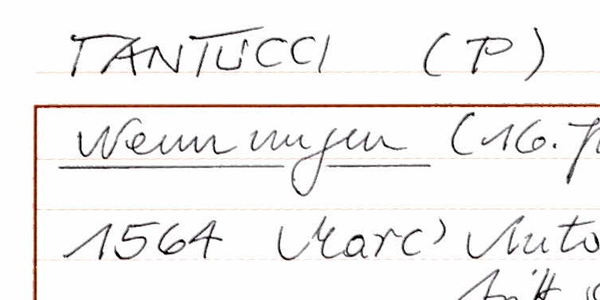 TANTUCCI (P)
Nennungen (16.
1564 Marc' Anto